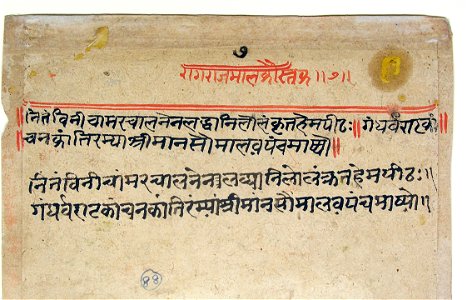 ७
रागराजमालकौस्तिक॥७॥
॥नितंविनीचामरचालनेनलद्धानिलौलंकृतहेमपीठः॥
॥चनकांतिरम्याश्रीमानसौमालवपंचमाष्यो॥
नितंविनीचांमरचालनेनालव्धानिलोलंकृतहेमपीठः॥
गंधर्वराटकोचनकांतिरंम्यांश्रीमानसौमालवपंचमाष्यो॥